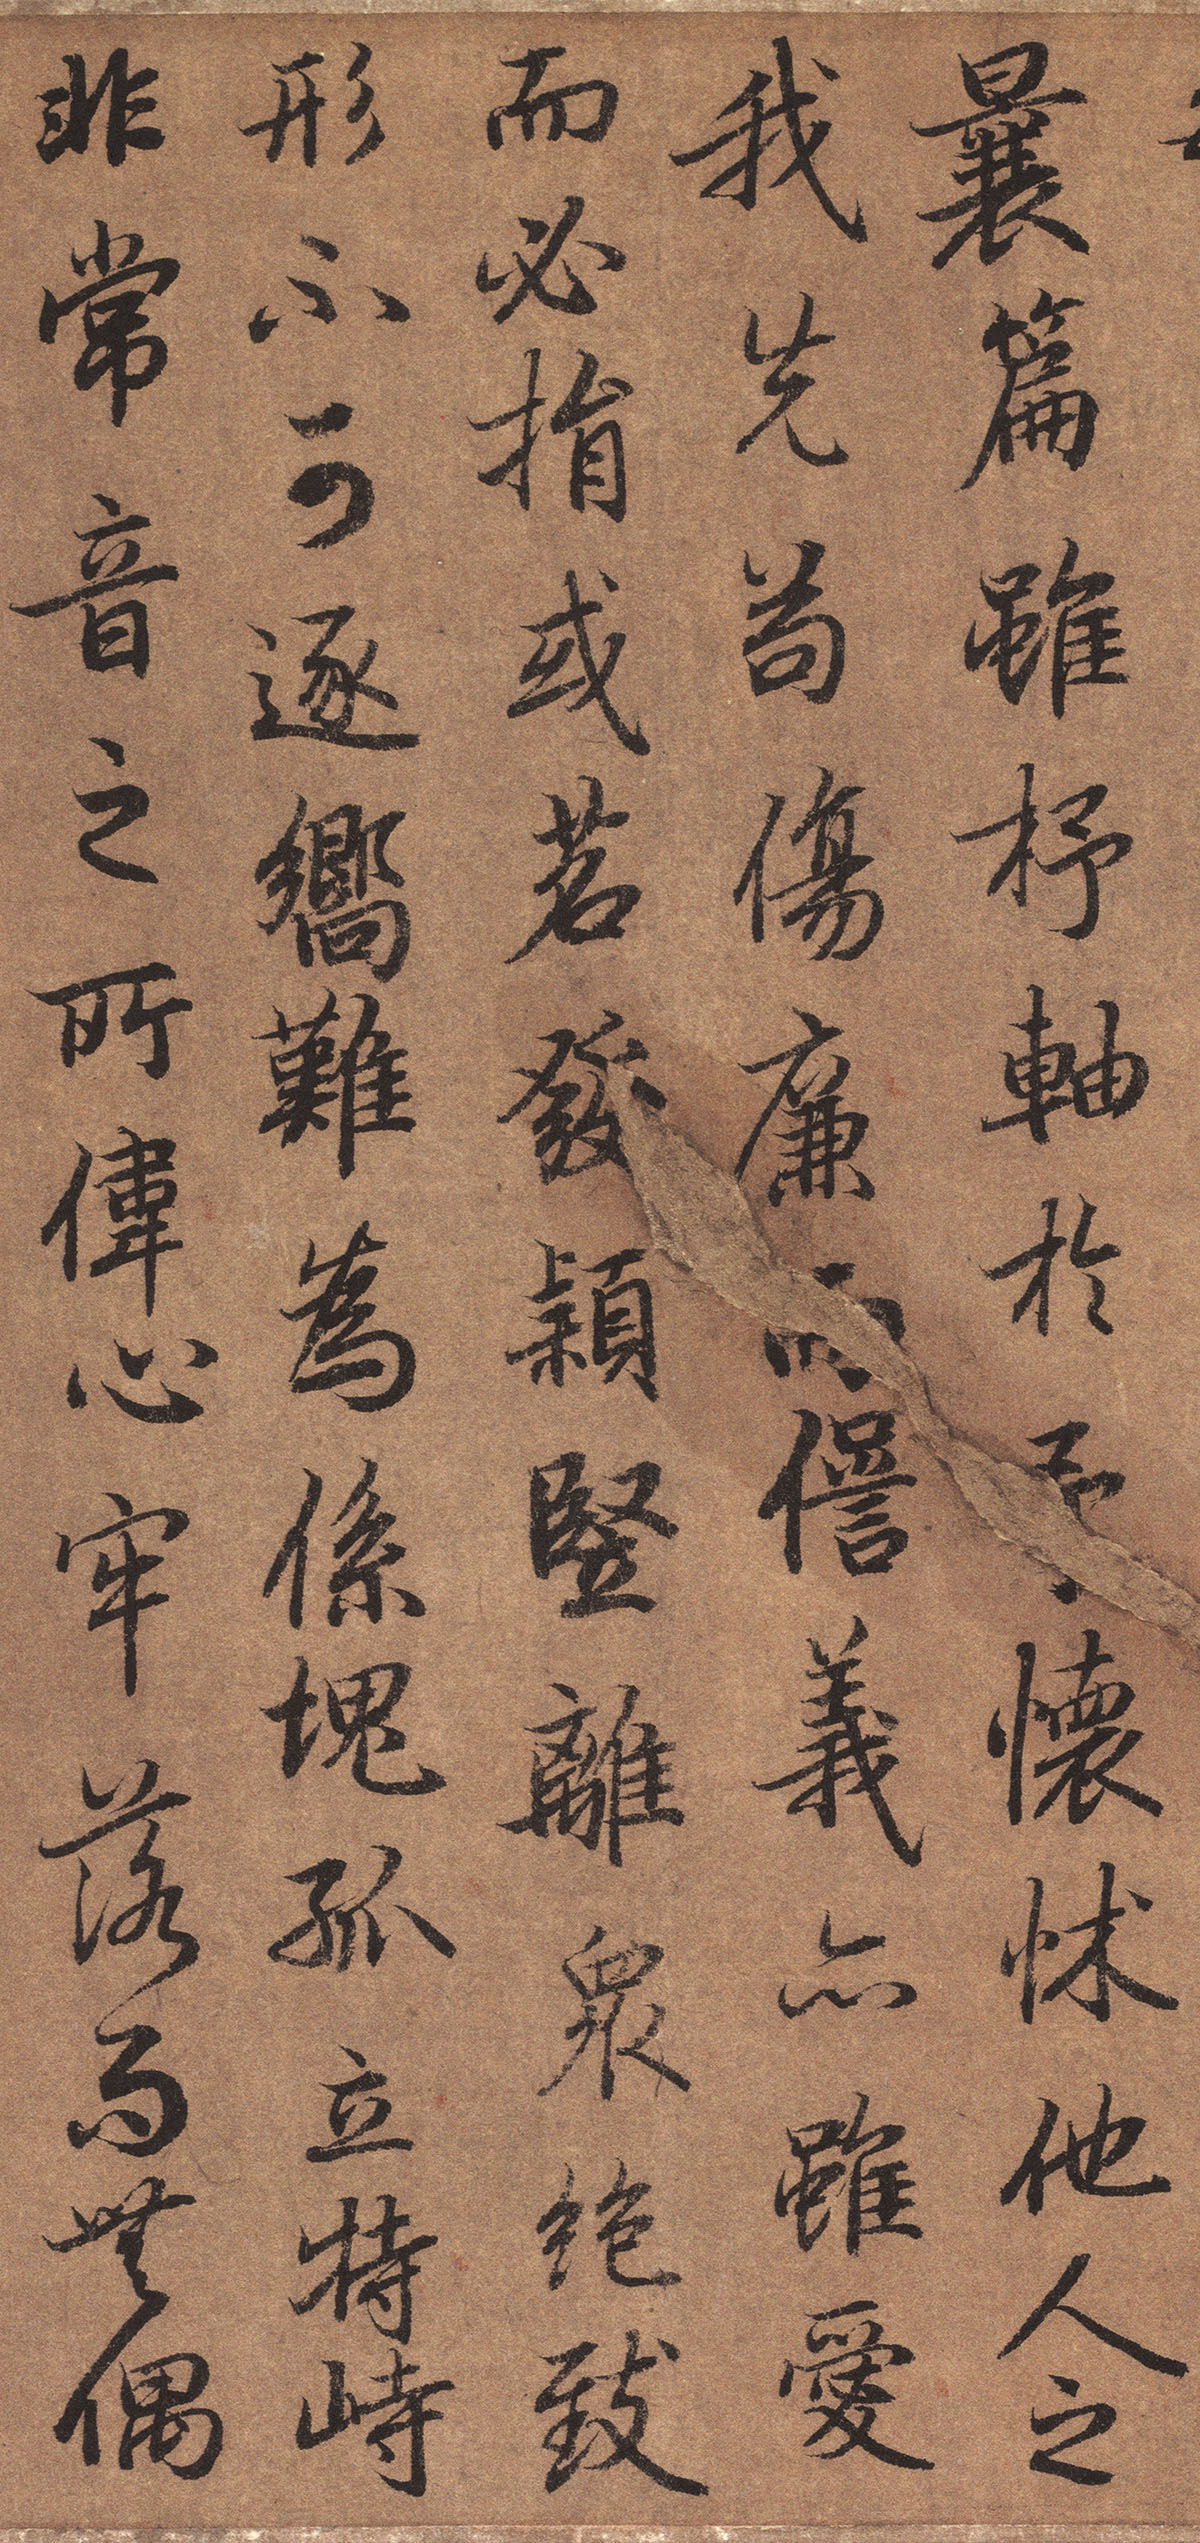 曩篇雖杼軸於予懷怵他人之
我先苟傷廉而𠎝義亦雖愛
而必捐或苕發穎竪離衆絶致
形不可逐嚮難為係塊孤立特峙
非常音之所偉心牢落而無偶